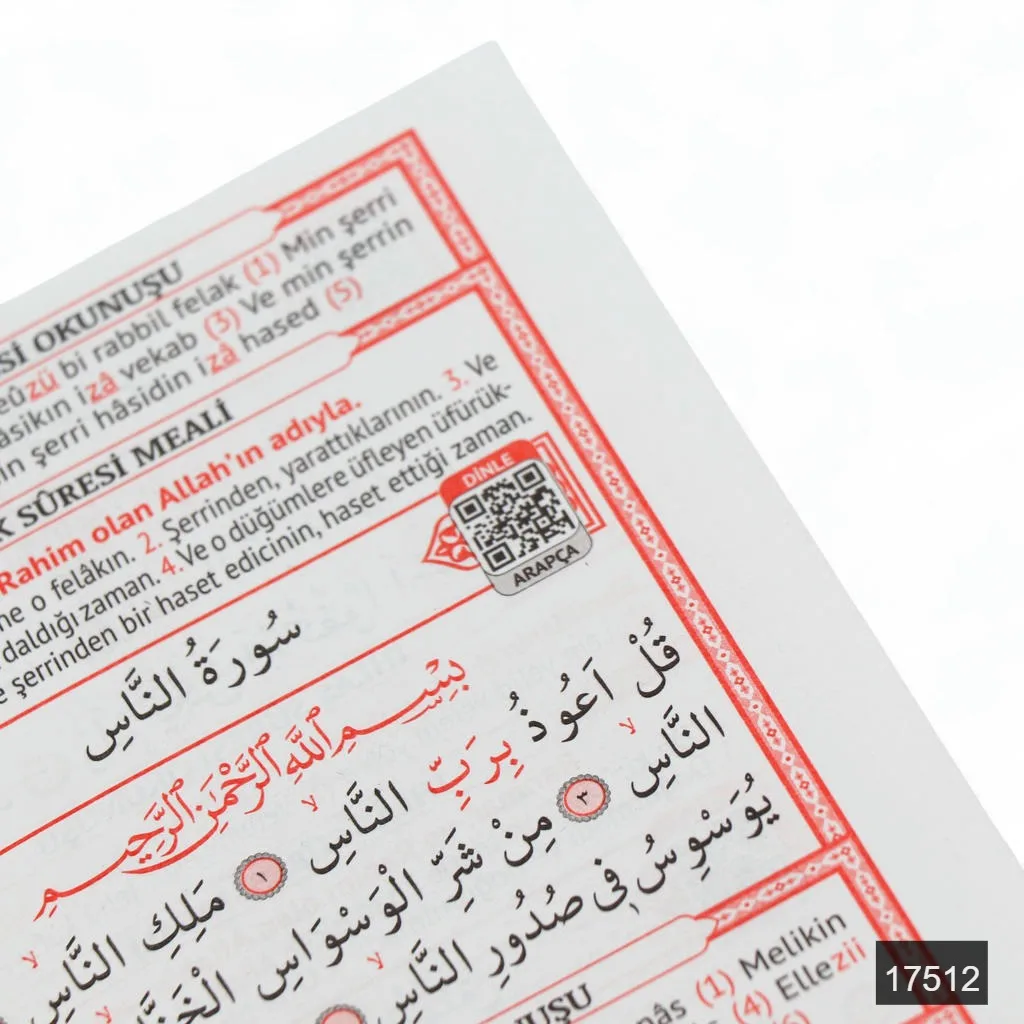 Sİ OKUNUŞU
bi rabbil felak (1) Min şerri
izâ vekab (3) Ve min şerrin
şerri hâsidin izâ hased (5)
SÛRESİ MEALİ
Rahim olan Allah'ın adıyla.
o felâkın. 2. Şerrinden, yarattıklarının. 3. Ve
daldığı zaman. 4. Ve o düğümlere üfleyen üfürük-
şerrinden bir haset edicinin, haset ettiği zaman.
DİNLE
ARAPÇA
سُورَةُ النَّاسِ
بِسْمِ اللَّهِ الرَّحْمٰنِ الرَّحِيمِ
قُلْ اَعُوذُ بِرَبِّ النَّاسِ ١ مَلِكِ النَّاسِ
النَّاسِ ٣ مِنْ شَرِّ الْوَسْوَاسِ
يُوَسْوِسُ فِى صُدُورِ النَّاسِ
(1) Melikin
(4) Ellezii
17512